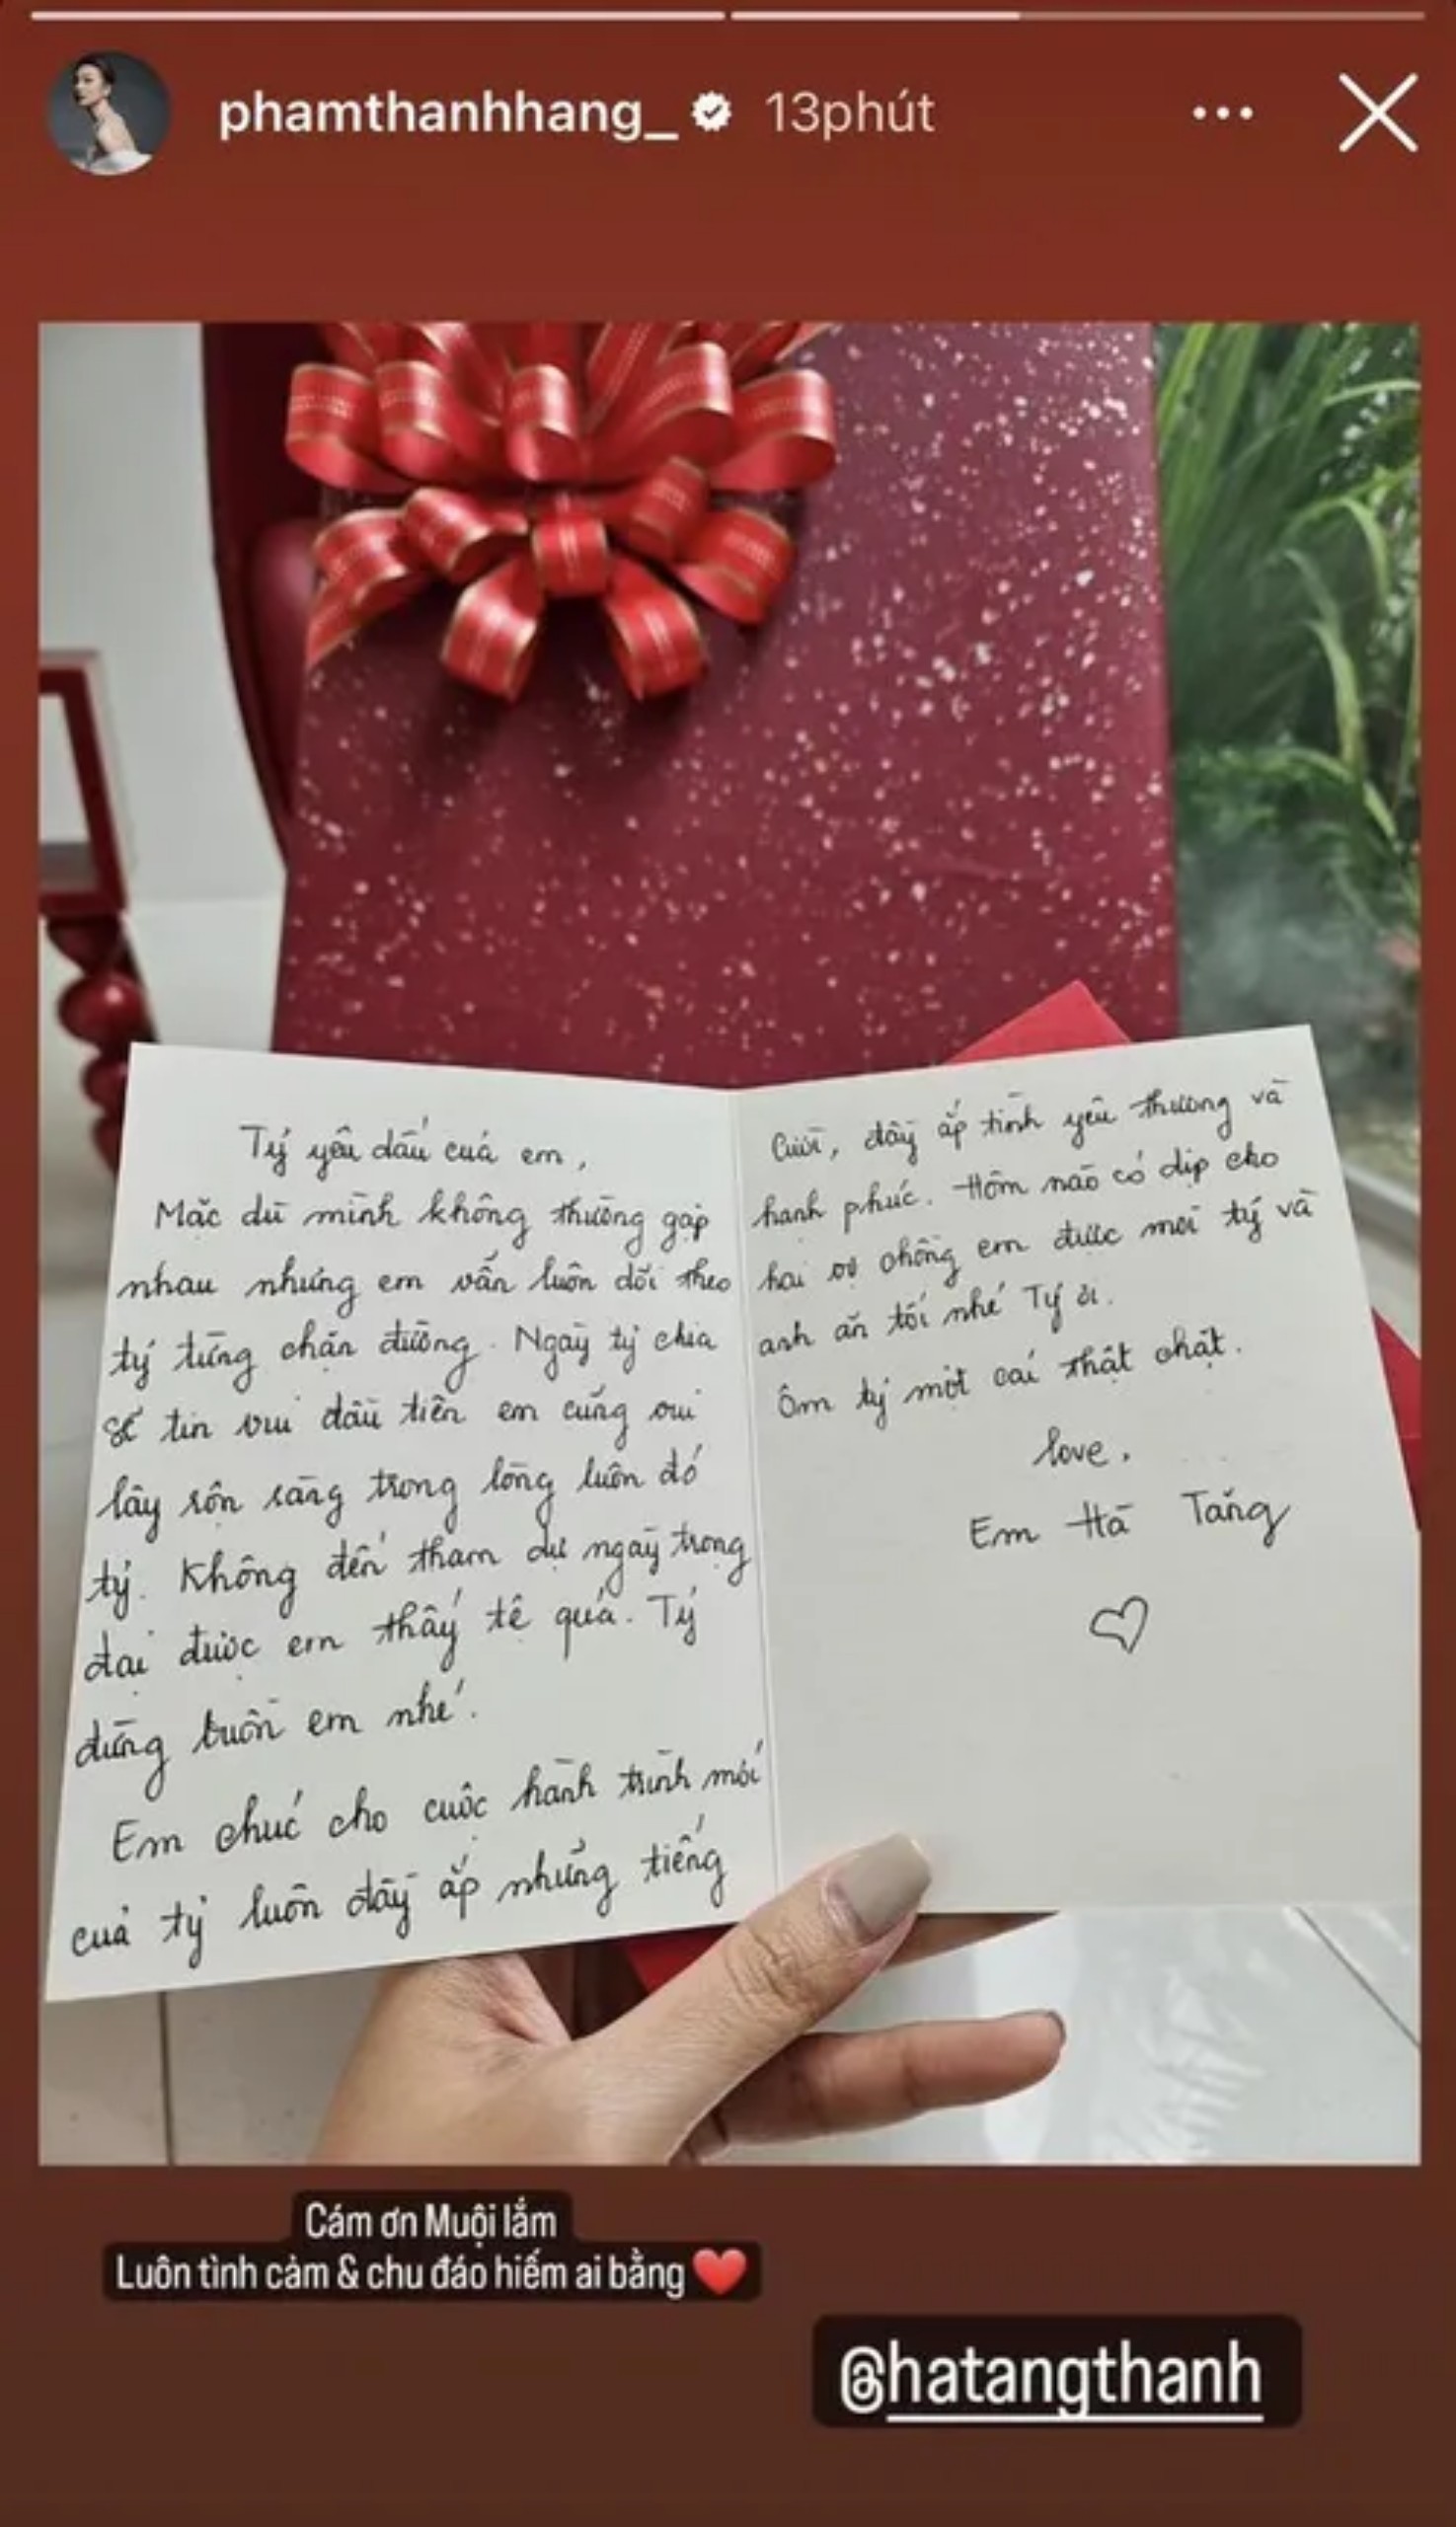 phamthanhhang_ 13phút
Tỷ yêu dấu của em,
Mặc dù mình không thường gặp
nhau nhưng em vẫn luôn dõi theo
tỷ từng chặn đường. Ngày tỷ chia
sẻ tin vui đầu tiên em cũng vui
lây rộn ràng trong lòng luôn đó
tỷ. Không đến tham dự ngày trọng
đại được em thấy tệ quá. Tỷ
đừng buồn em nhé.
Em chúc cho cuộc hành trình mới
của tỷ luôn đầy ắp những tiếng
cười, đầy ắp tình yêu thương và
hạnh phúc. Hôm nào có dịp cho
hai vợ chồng em được mời tỷ và
anh ăn tối nhé Tỷ ơi.
Ôm tỷ một cái thật chặt.
love.
Em Hà Tăng
Cám ơn Muội lắm
Luôn tình cảm & chu đáo hiếm ai bằng
@hatangthanh